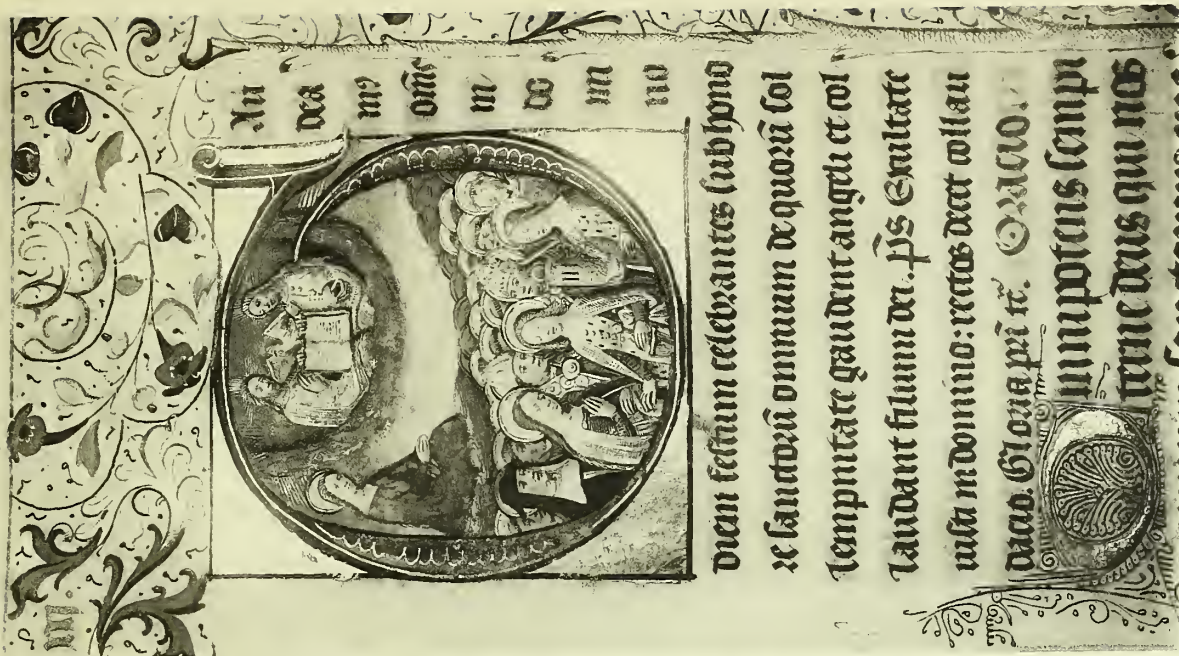 Au
dea
m⁹
om̄s
in
do
mi
no
diem festum celebrantes sub hono
re sanctorū omnium de quorū sol
lempnitate gaudent angeli et col
laudant filium dei. p̄s Exultate
iusta in domino: rectos decet collau
dacio. Gloria pr̄i ꝛc̄. Oracio.
mnipotens sempi
terne deus qui nos